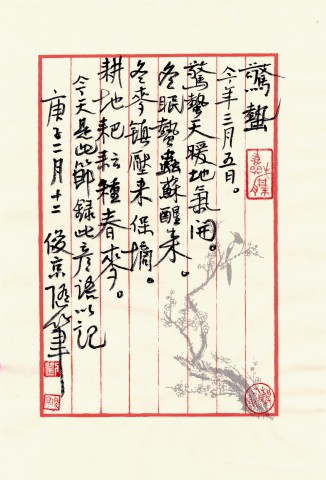 驚蟄
今年三月五日。
驚蟄天暖地氣開。
冬眠蟄蟲蘇醒来。
冬麥鎮壓来保墒。
耕地耙耘種春麥。
今天是此節録此彦語以記
庚子二月十二 俊京隨筆